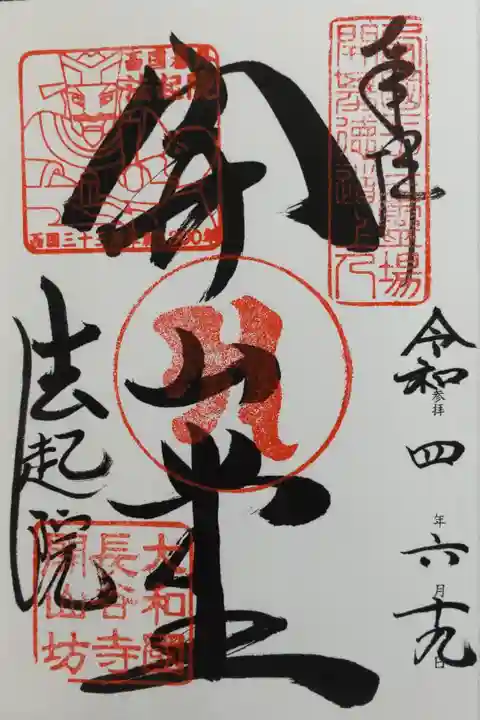 奉拝
西国三十三所霊場
開基徳道上人
令和四年六月十九日
参拝
開山堂
法起院
大和国
長谷寺
開山坊